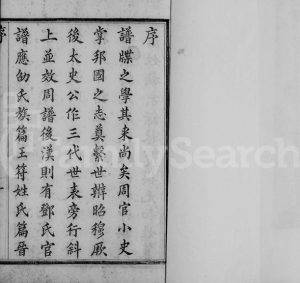 序
譜牒之學其來尚矣周官小史
掌邦國之志奠繫世辨昭穆厥
後太史公作三代世表旁行斜
上並效周譜後漢則有鄧氏官
譜應劭氏族篇王符姓氏篇晉
序
FamilySearch